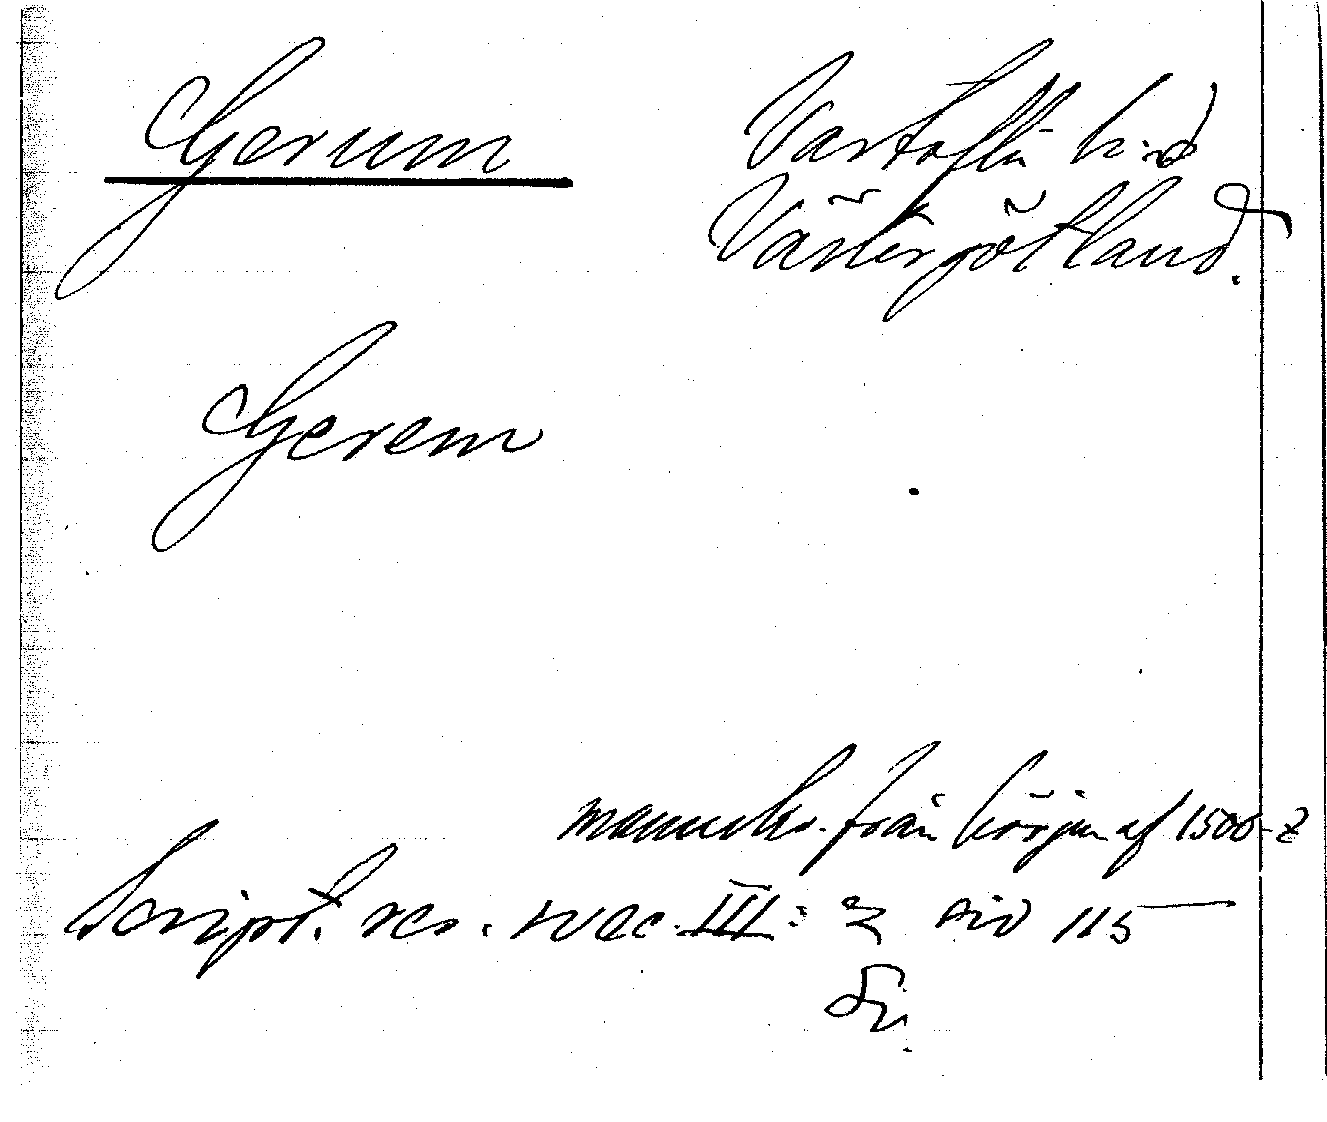 Gerum
Vartofta h:d
Västergötland.
Gerem
manuskr. från början af 1500-t
Script. rer. svec. III: 2 sid 115